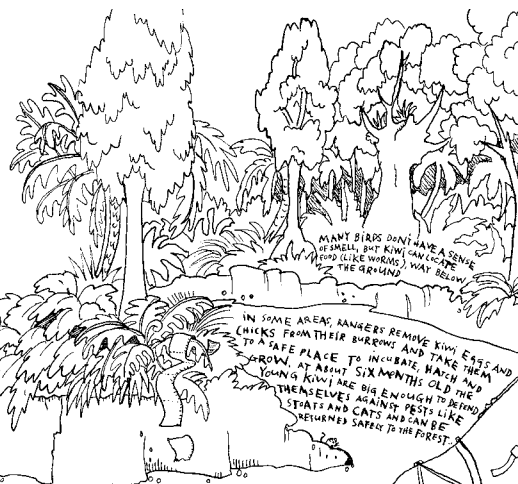 MANY BIRDS DON'T HAVE A SENSE
OF SMELL, BUT KIWI CAN LOCATE
FOOD (LIKE WORMS), WAY BELOW
THE GROUND
IN SOME AREAS, RANGERS REMOVE KIWI EGGS AND
CHICKS FROM THEIR BURROWS AND TAKE THEM
TO A SAFE PLACE TO INCUBATE, HATCH AND
GROW. AT ABOUT SIX MONTHS OLD THE
YOUNG KIWI ARE BIG ENOUGH TO DEFEND
THEMSELVES AGAINST PESTS LIKE
STOATS AND CATS AND CAN BE
RETURNED SAFELY TO THE FOREST..